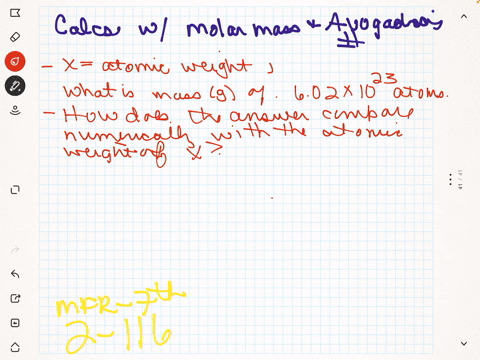 Calcs w/ molar mass & Avogadro's #
- X = atomic weight,
what is mass (g) of 6.02 x 10^23 atoms.
- How does the answer compare
numerically with the atomic
weight of X?
MFR-7th
2-116